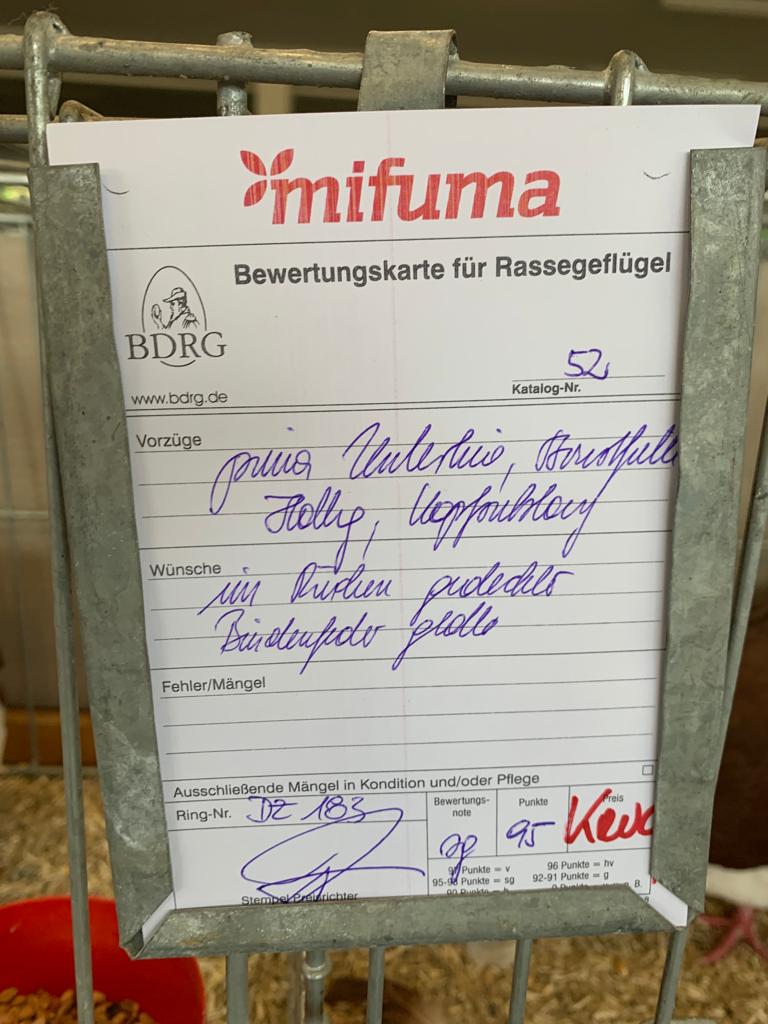 mifuma
Bewertungskarte für Rassegeflügel
BDRG
www.bdrg.de
52
Katalog-Nr.
Vorzüge
prima Unterlinie, Brustfülle
Haltg,
Wünsche
im Rücken gedeckter
Bindenfeder glatte
Fehler/Mängel
Ausschließende Mängel in Kondition und/oder Pflege
Ring-Nr. DZ 183
Bewertungs-
note
sg
Punkte
95
Preis
Stempel Preisrichter
97 Punkte = v
96 Punkte = hv
95-93 Punkte = sg
92-91 Punkte = g